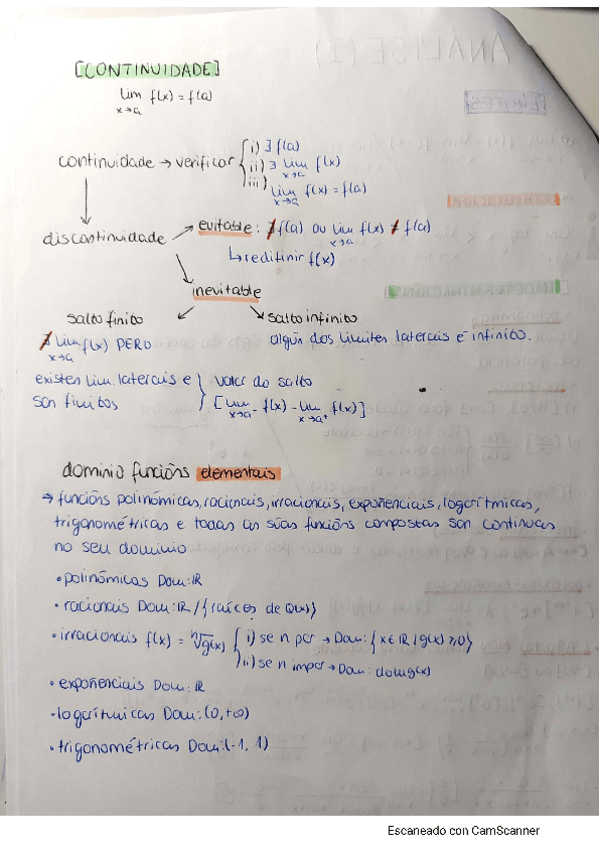 [CONTINUIDADE]
lim f(x) = f(a)
x→a
continuidade → verificar { i) ∃ f(a)
ii) ∃ lim f(x)
x→a
iii) lim f(x) = f(a)
x→a
discontinuidade → evitable: ∄ f(a) ou lim f(x) ≠ f(a)
x→a
↳ redifinir f(x)
inevitable
salto finito
salto infinito
∄ lim f(x) PERO
x→a
algún dos límites laterais é infinito.
existen lim. laterais e } valor do salto
son finitos [lim f(x) - lim f(x)]
x→a⁻ x→a⁺
dominio funcións elementais
→ funcións polinómicas, racionais, irracionais, expoñenciais, logarítmicas,
trigonométricas e todas as súas funcións compostas son continuas
no seu dominio
• polinómicas Dom: ℝ
• racionais Dom: ℝ / {raíces de Q(x)}
• irracionais f(x) = ⁿ√g(x) { i) se n par → Dom: {x ∈ ℝ / g(x) ≥ 0}
ii) se n impar → Dom: dom g(x)
• expoñenciais Dom: ℝ
• logarítmicas Dom: (0, +∞)
• trigonométricas Dom: (-1, 1)
Escaneado con CamScanner